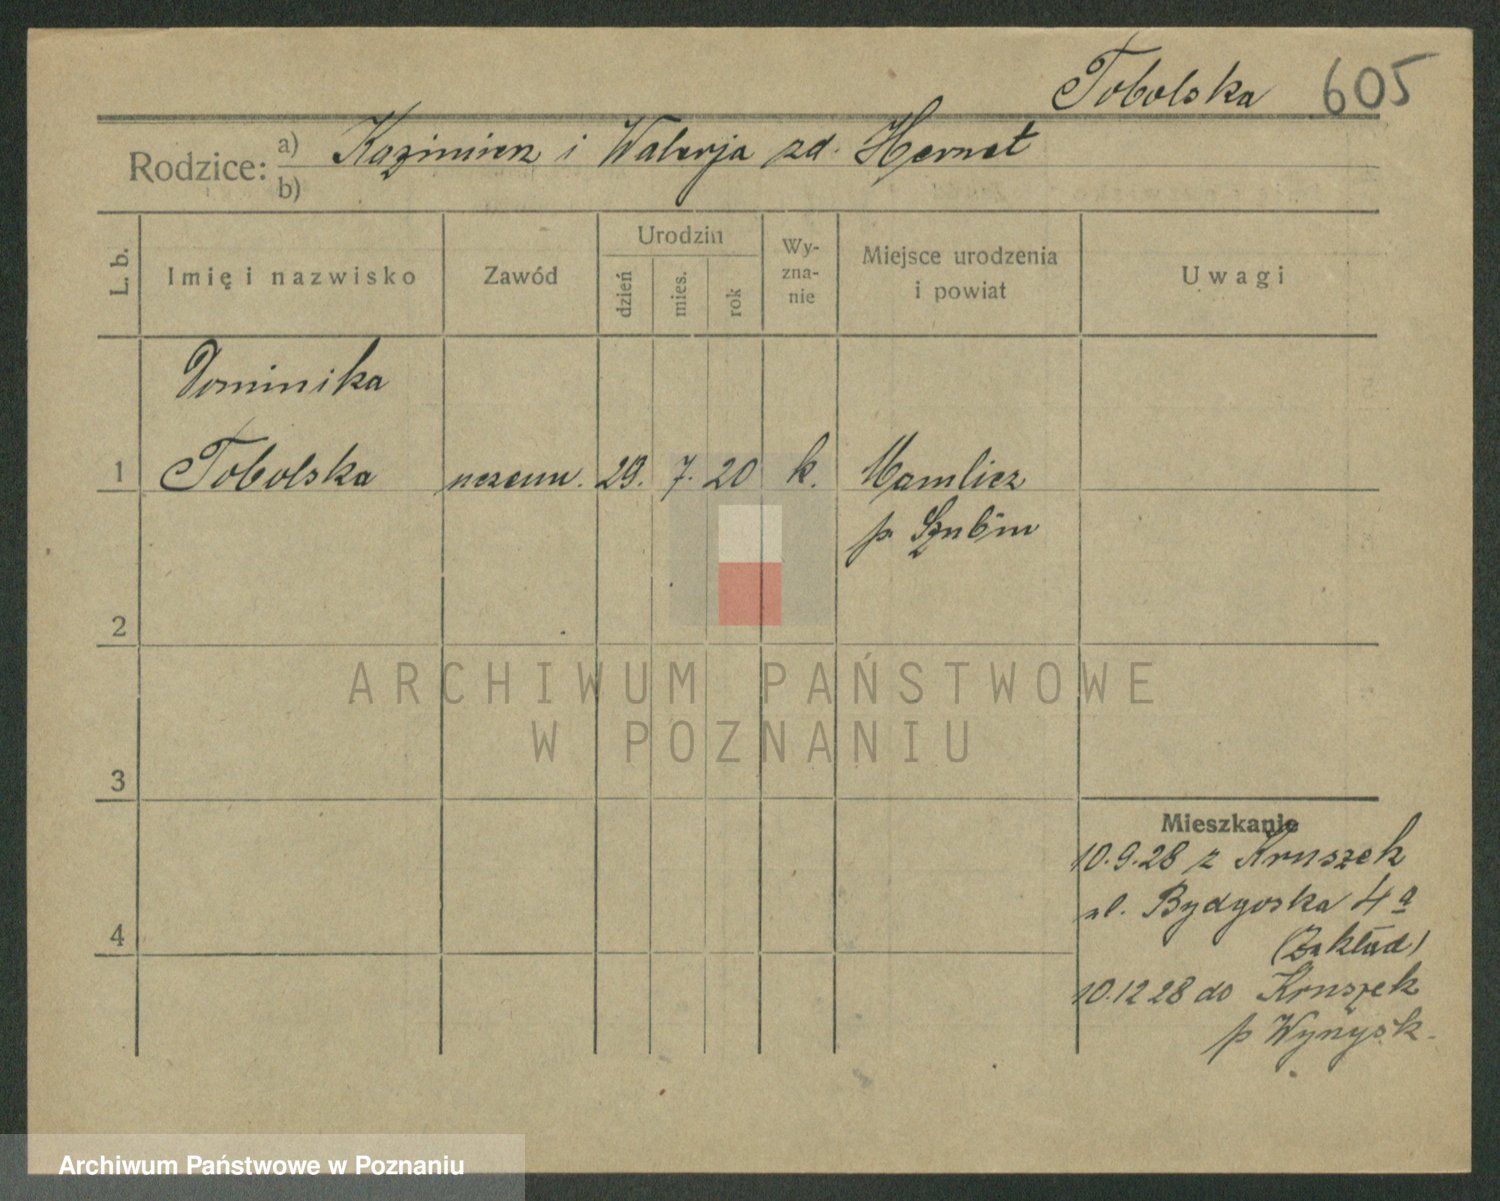 Tobolska 605
Rodzice: a) Kazimierz i Walerja zd. Hernet
b)
L. b. Imię i nazwisko Zawód Urodzin dzień mies. rok Wy-zna-nie Miejsce urodzenia i powiat Uwagi
Dominika
1 Tobolska uczenn. 29. 7. 20 k. Mamlicz
p. Szubin
2
ARCHIWUM PAŃSTWOWE
W POZNANIU
3
Mieszkanie
10.9.28 z Kruszek
ul. Bydgoska 4a
4 (Zakład)
10.12 28 do Kruszek
p Wyrzysk.
Archiwum Państwowe w Poznaniu